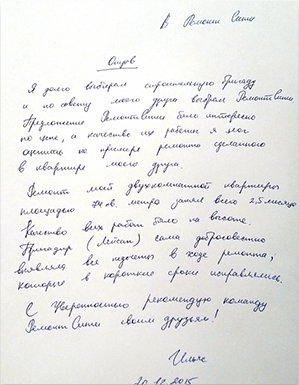 В Ремонт Сити
Отзыв
Я долго выбирал строительную бригаду
и по совету моего друга выбрал РемонтСити
Предложение РемонтСити было интересно
по цене, а качество их работы я мог
оценить на примере ремонта сделанного
в квартире моего друга.
Ремонт моей двухкомнатной квартиры
площадью 74 кв. метра занял всего 2,5 месяца
Качество всех работ было на высоте.
Бригадир сама добросовестно
выявляла все недочеты в ходе ремонта,
которые в короткие сроки исправлялись.
С уверенностью рекомендую команду
РемонтСити своим друзьям!
20.12.2015